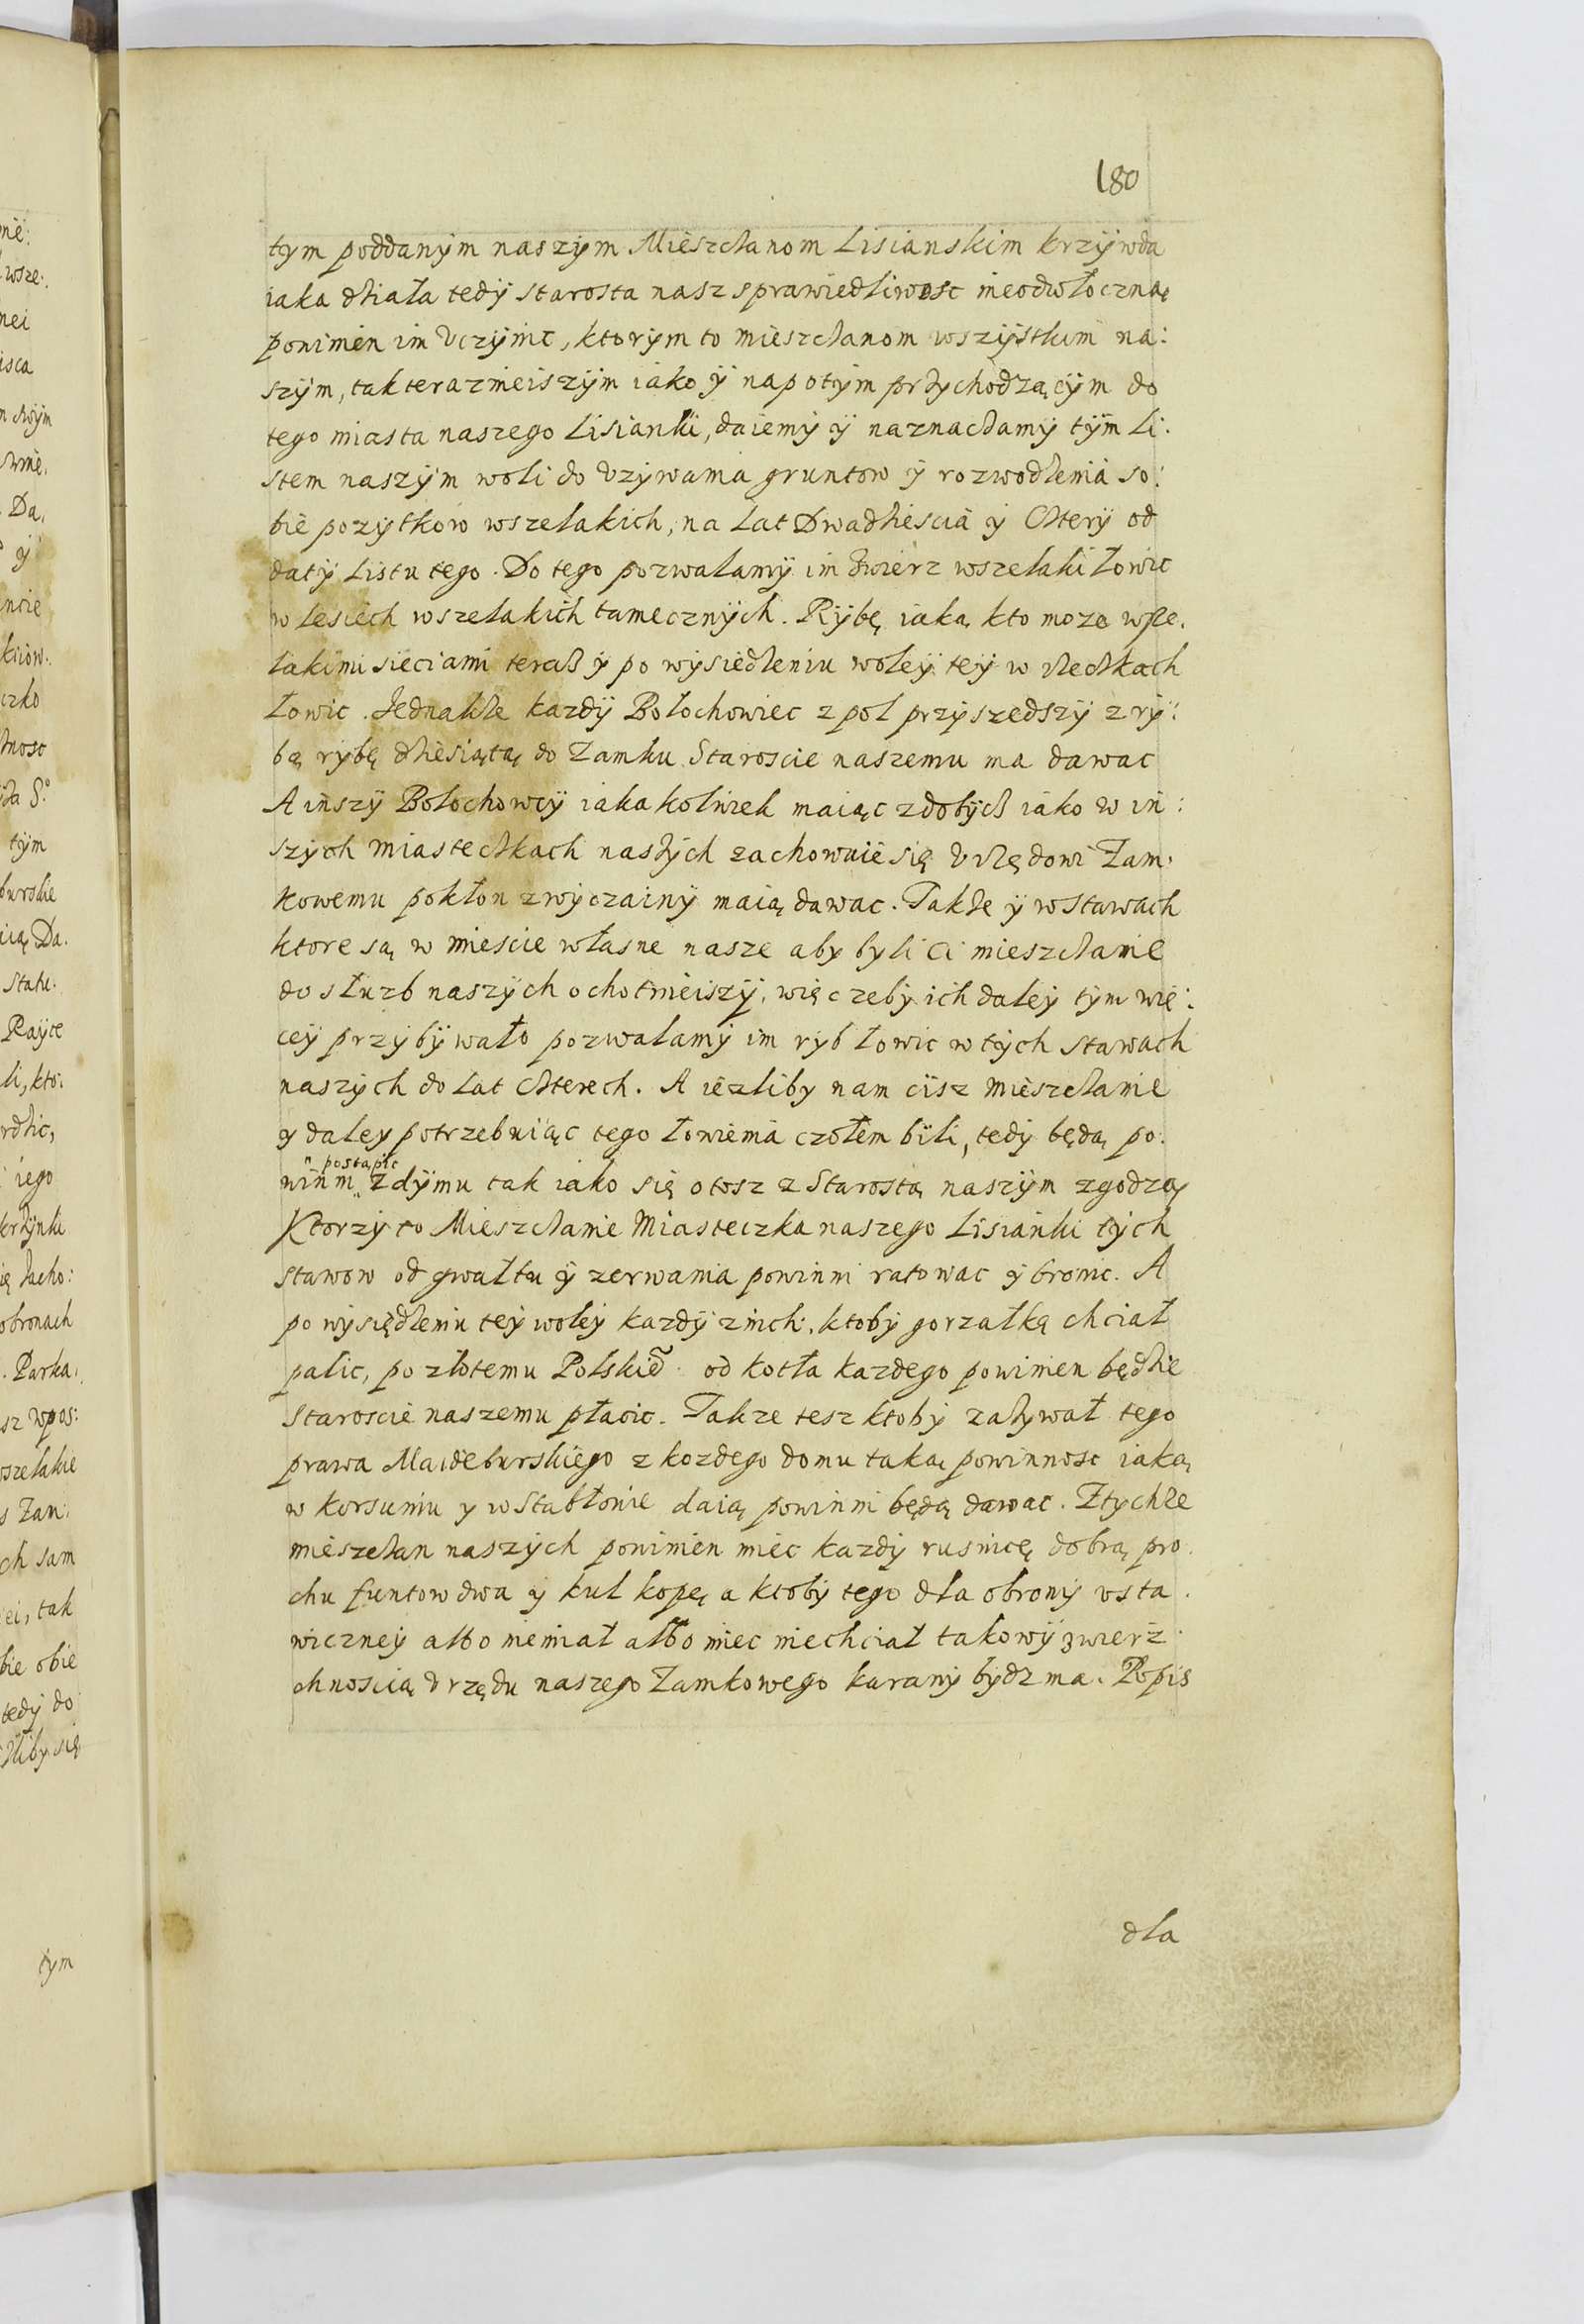 180
tym poddanÿm naszÿm Mieszczanom Lisianskim krzÿwda
iaka działa tedÿ starosta nasz sprawiedliwosc nieodwłoczną
powinien im Vczÿnic, ktorÿm to mieszczanom wszÿstkim na:
szÿm, tak terazneiszÿm iako ÿ napotÿm przÿchodzącÿm do
tego miasta naszego Lisianki, daiemÿ ÿ naznaczamÿ tÿm Li.
stem naszÿm woli do Vzÿwania gruntow ÿ rozwodzenia so:
bie pozÿtkow wszelakich, na Lat Dwadziescia ÿ Czterÿ od
datÿ Listu tego. Do tego pozwalamÿ im zwierz wszelaki łowic
w lesiech wszelakich tamecznÿch. Rÿbę iaką kto moze wsze.
lakimi sieciami teraz ÿ po wÿsiedzeniu woleÿ teÿ w rzeczkach
łowic. Jednakze kazdÿ Bołochowiec z pol przÿszedszÿ z rÿ:
bą rÿbę dziesiątą do Zamku Staroscie naszemu ma dawac
A inszÿ Bołochowcÿ iaka kolwiek maiąc zdobÿcz iako w in:
szÿch miasteczkach naszÿch zachowuie się Vrzędowi Zam.
kowemu pokłon zwÿczainÿ maią dawac. Takze ÿ w stawach
ktore są w miescie własne nasze aby byli ci mieszczanie
do słuzb naszÿch ochotnieiszÿ, więc zebÿ ich daleÿ tÿm wię:
ceÿ przÿbÿwało pozwalamÿ im rÿb łowic w tÿch stawach
naszÿch do lat czterech. A iezliby nam cisz mieszczanie
y daley potrzebuiąc tego łowienia czołem bÿli, tedÿ będą po.
postąpic
winni z dÿmu tak iako się o tosz z Starostą naszÿm zgodzą
Ktorzÿ to Mieszczanie Miasteczka naszego Lisianki tÿch
stawow od gwałtu ÿ zerwania powinni ratowac ÿ bronic. A
po wÿsiędzeniu teÿ woleÿ kazdÿ z nich, ktobÿ gorzałkę chciał
palic, po złotemu Polskie͂ od kotła kazdego powinien będzie
Staroscie naszemu płacic. Takze tesz ktobÿ zazÿwał tego
prawa Maideburskiego z kozdego domu taką powinnosc iaką
w korsuniu y w Stabłowie daią powinni będą dawac. Z tychze
mieszczan naszÿch powinien miec kazdÿ rusnicę dobrą pro.
chu funtow dwa ÿ kul kopę a ktobÿ tego dla obronÿ vsta.
wiczneÿ albo niemiał albo miec niechciał takowÿ zwierz.
chnoscią Vrzędu naszego Zamkowego karanÿ bÿdz ma. Popis
dla